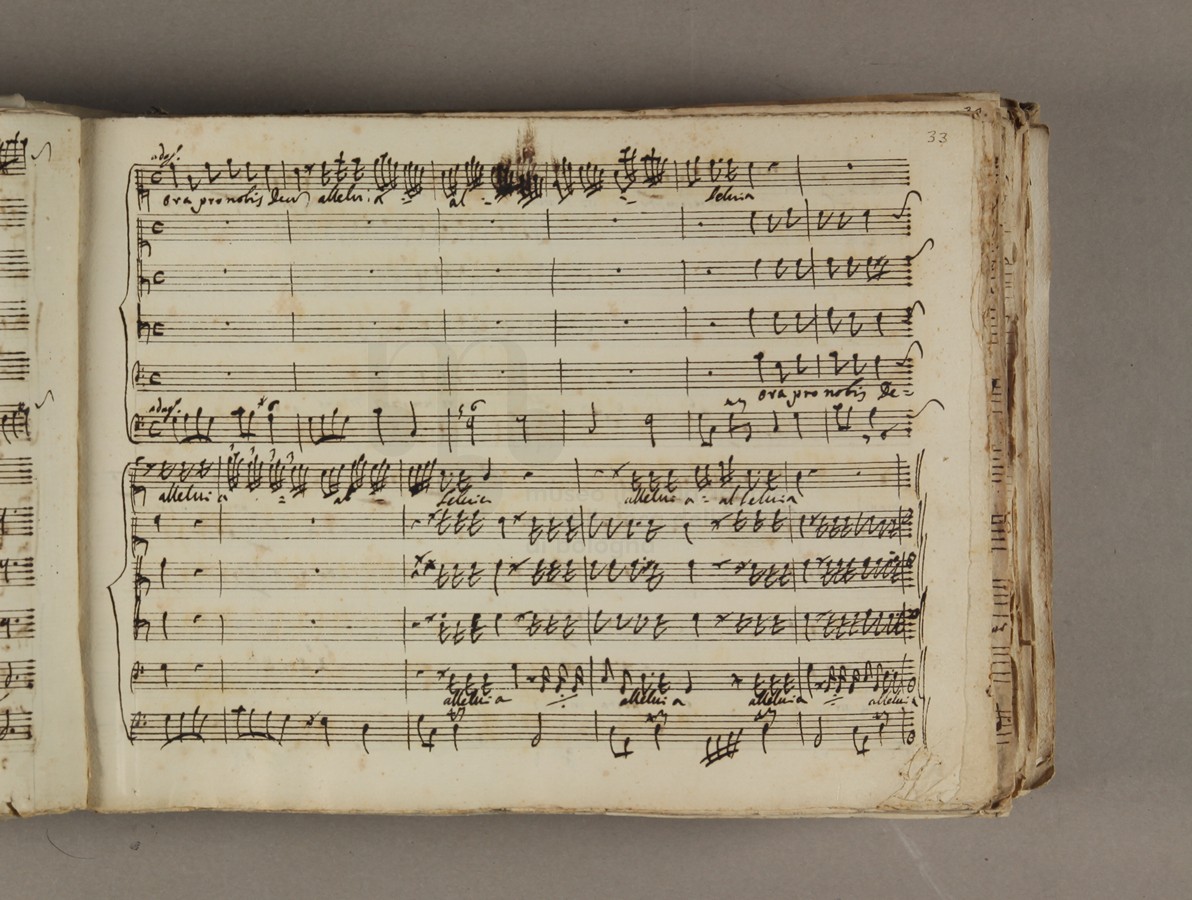 33
adag.o
ora pro nobis deum alleluia = al - - leluia
ora pro nobis de=
adag.o
um
alleluia = al leluia alleluia = alleluia
museo
bologna
alleluia alleluia alleluia alleluia